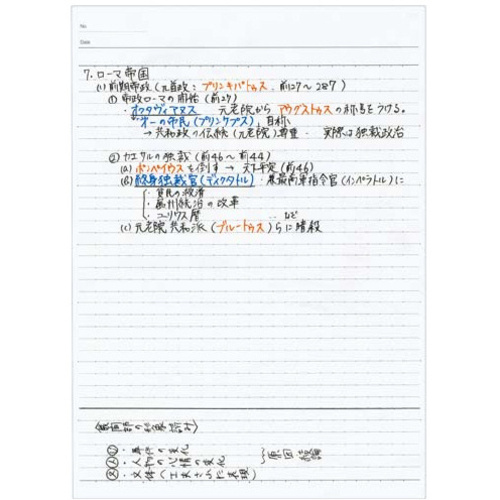 No.
Date
7. ローマ帝国
(1) 前期帝政 (元首政: プリンキパトゥス. 前27〜287)
① 帝政ローマの開始 (前27)
・オクタヴィアヌス 元老院から アウグストゥス の称号をうける。
"オーの市民 (プリンケプス)", 自称
→ 共和政の伝統 (元老院) 尊重. 実際は独裁政治
② カエサルの独裁 (前46〜前44)
(a) ポンペイウスを倒す → 天下平定 (前46)
(B) 終身独裁官 (ディクタトル)・最高軍指令官 (インペラトル) に
・貧民の救済
・属州統治の改革
・ユリウス暦 … など
(c) 元老院共和派 (ブルートゥス) らに暗殺
・事件の変化
・人物の心情の変化
・文体 (工夫された表現)
原因